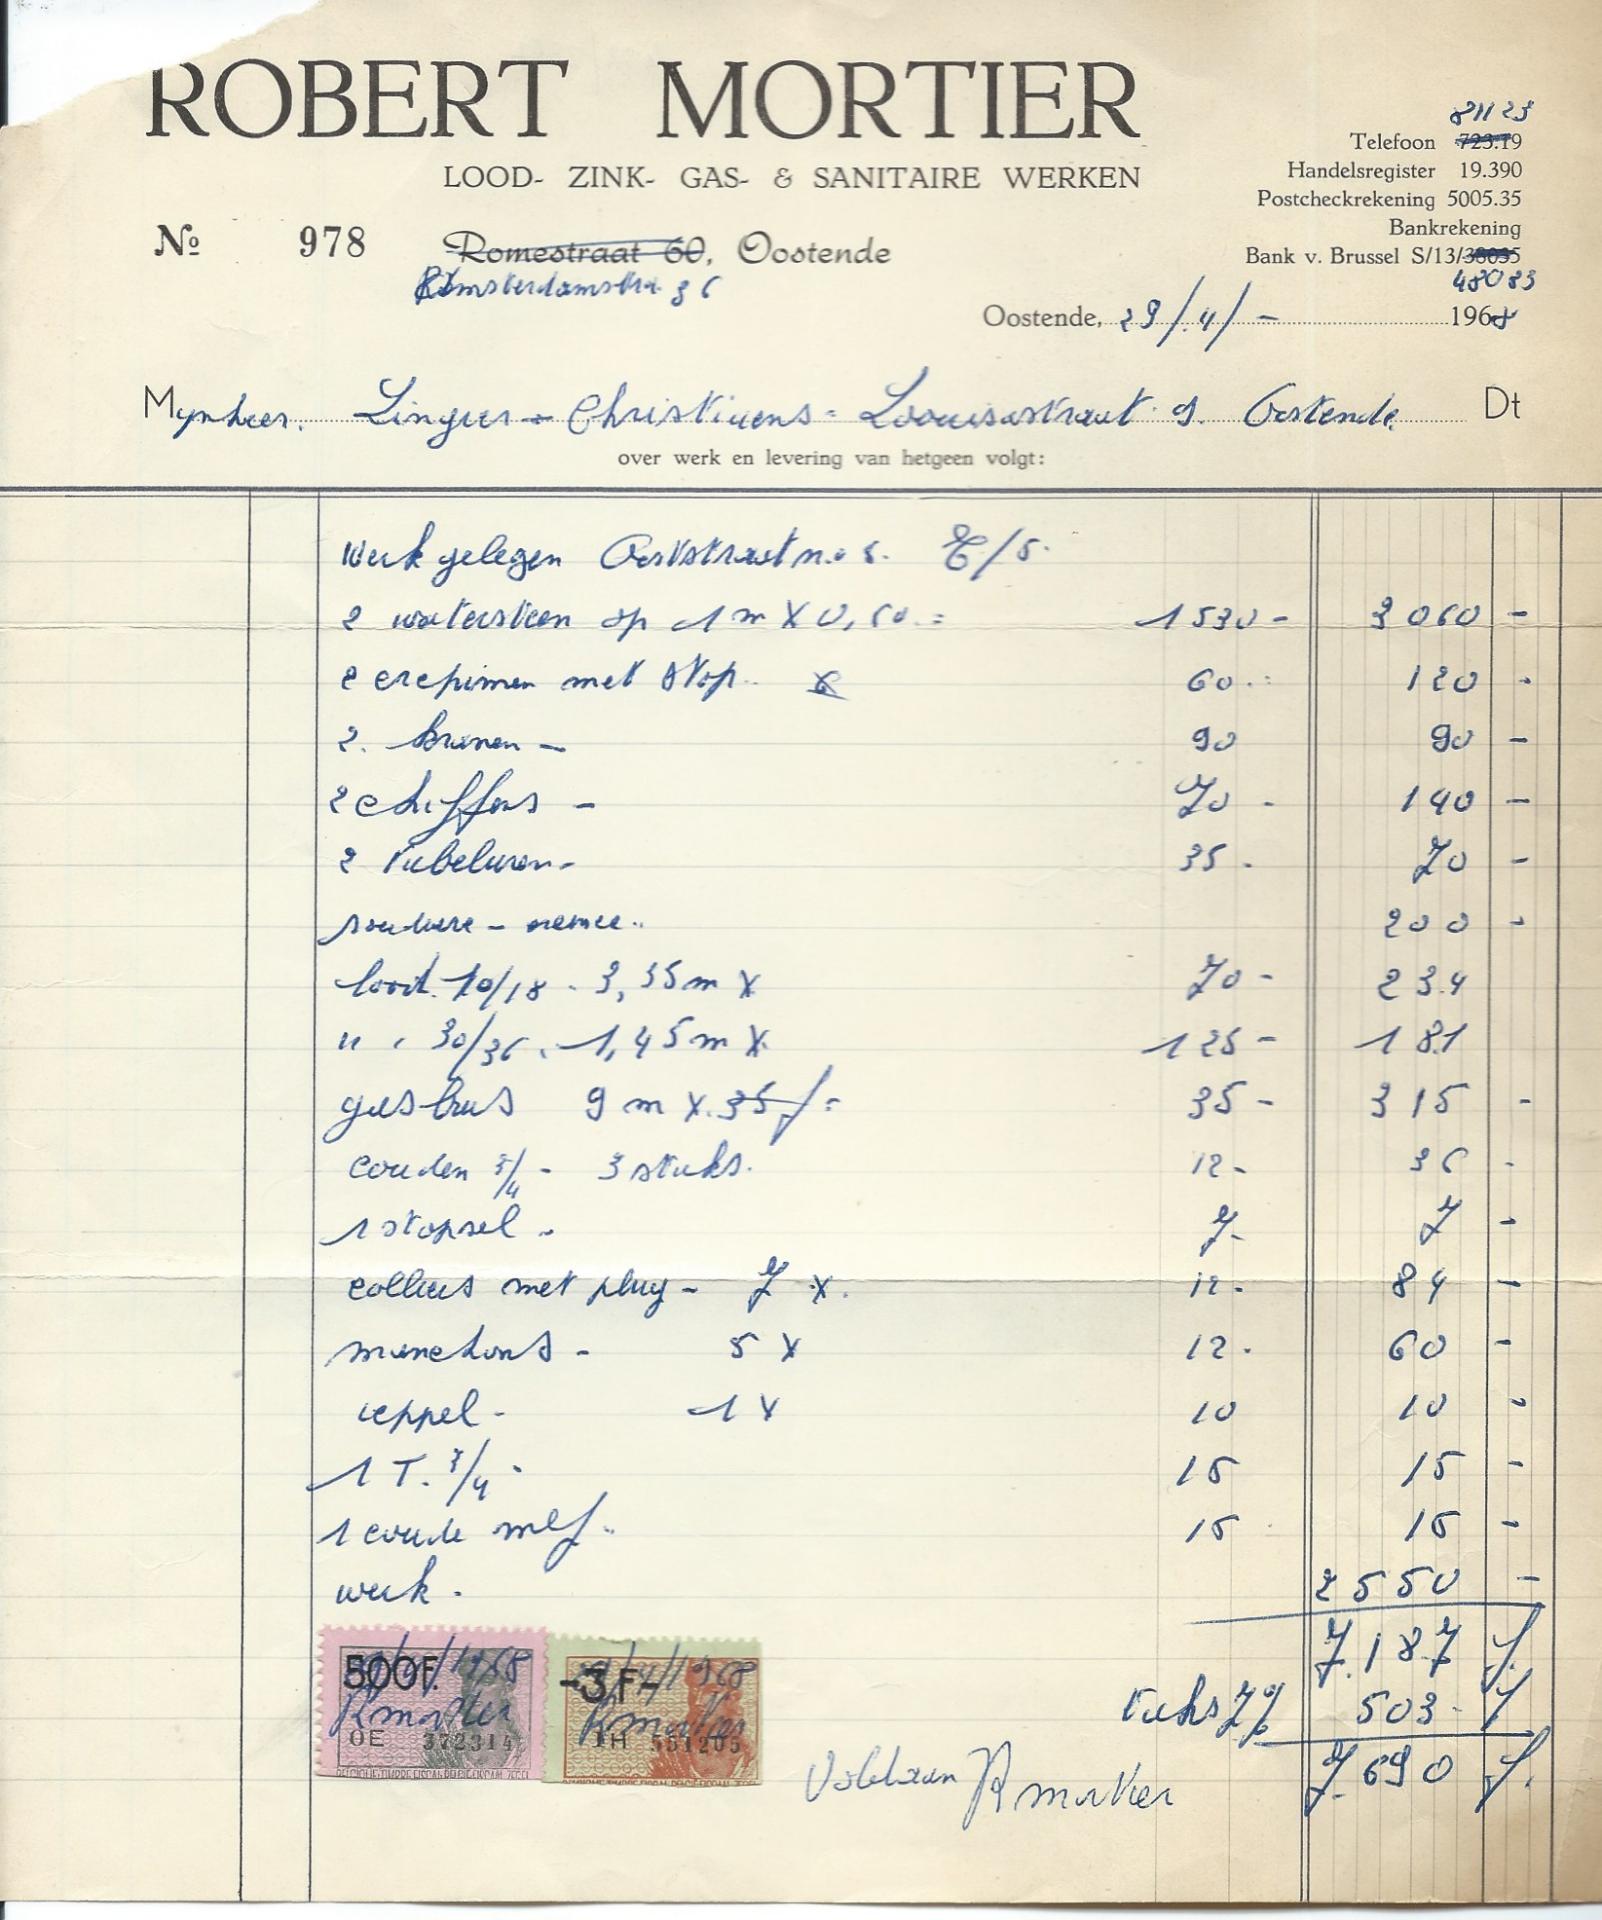 ROBERT MORTIER
LOOD- ZINK- GAS- & SANITAIRE WERKEN
81123
Telefoon 723.19
Handelsregister 19.390
Postcheckrekening 5005.35
Bankrekening
Bank v. Brussel S/13/38035
48083
No 978 Romestraat 60, Oostende
Amsterdamstra. 36
Oostende, 29/4/- 1968
Mynheer. Lingier - Christiaens = Louisastraat 9. Oostende. Dt
over werk en levering van hetgeen volgt:
werk gelegen Oststraat n.o 5.
2 watersteen op 1 m X 0,60.= 1530 - 3060 -
2 crepienen met stop.. 60.= 120 -
2. kranen - 90 90 -
2 chiffons - 70 - 140 -
2 tubeluren - 35 - 70 -
soudure - 200 -
lood. 10/18 - 3,35 m X 70 - 234
" . 30/36 . 1,45 m X. 125 - 181
gasbuis 9 m X. 35 f = 35 - 315 -
couden 3/4 - 3 stuks. 12 - 36 -
1 stopsel - 7 - 7 -
colliers met plug - 7 x. 12 - 84 -
manchons - 5 X 12 - 60 -
neppel - 1 X 10 10 -
1 T. 3/4 - 15 15 -
1 coude m&f. 15 15 -
werk . 2550 -
7.187 f.
taks 7% 503 - f
7.690 f.
Voldaan R Mortier
500F.
29/4/1968
R Mortier
OE 372314
-3F-
29/4/1968
R Mortier
1H 551205